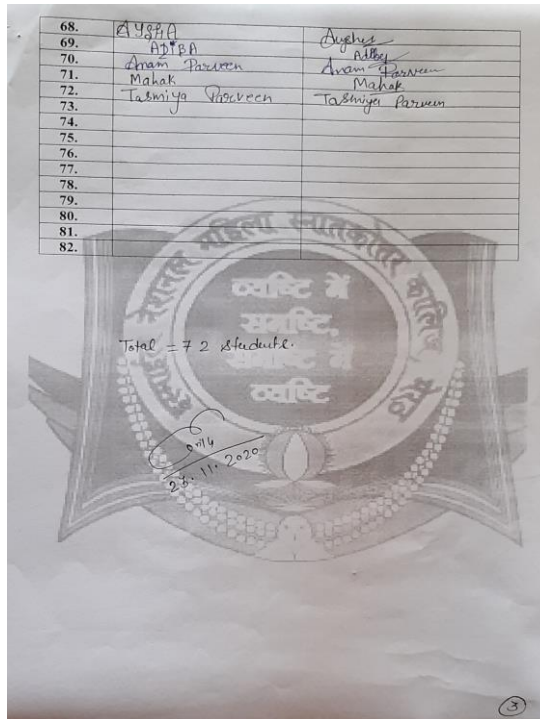 68. AYSHA Ayshes
69. ADIBA
70. Anam Parveen Anam Parveen
71. Mahak Mahak
72. Tasmiya Parveen Tasmiya Parveen
73.
74.
75.
76.
77.
78.
79.
80.
81.
82.
नेशनल महिला स्नातकोत्तर कॉलिज, मेरठ
व्यष्टि में
समष्टि,
समष्टि में
व्यष्टि
Total = 72 Students.
23.11.2020
3